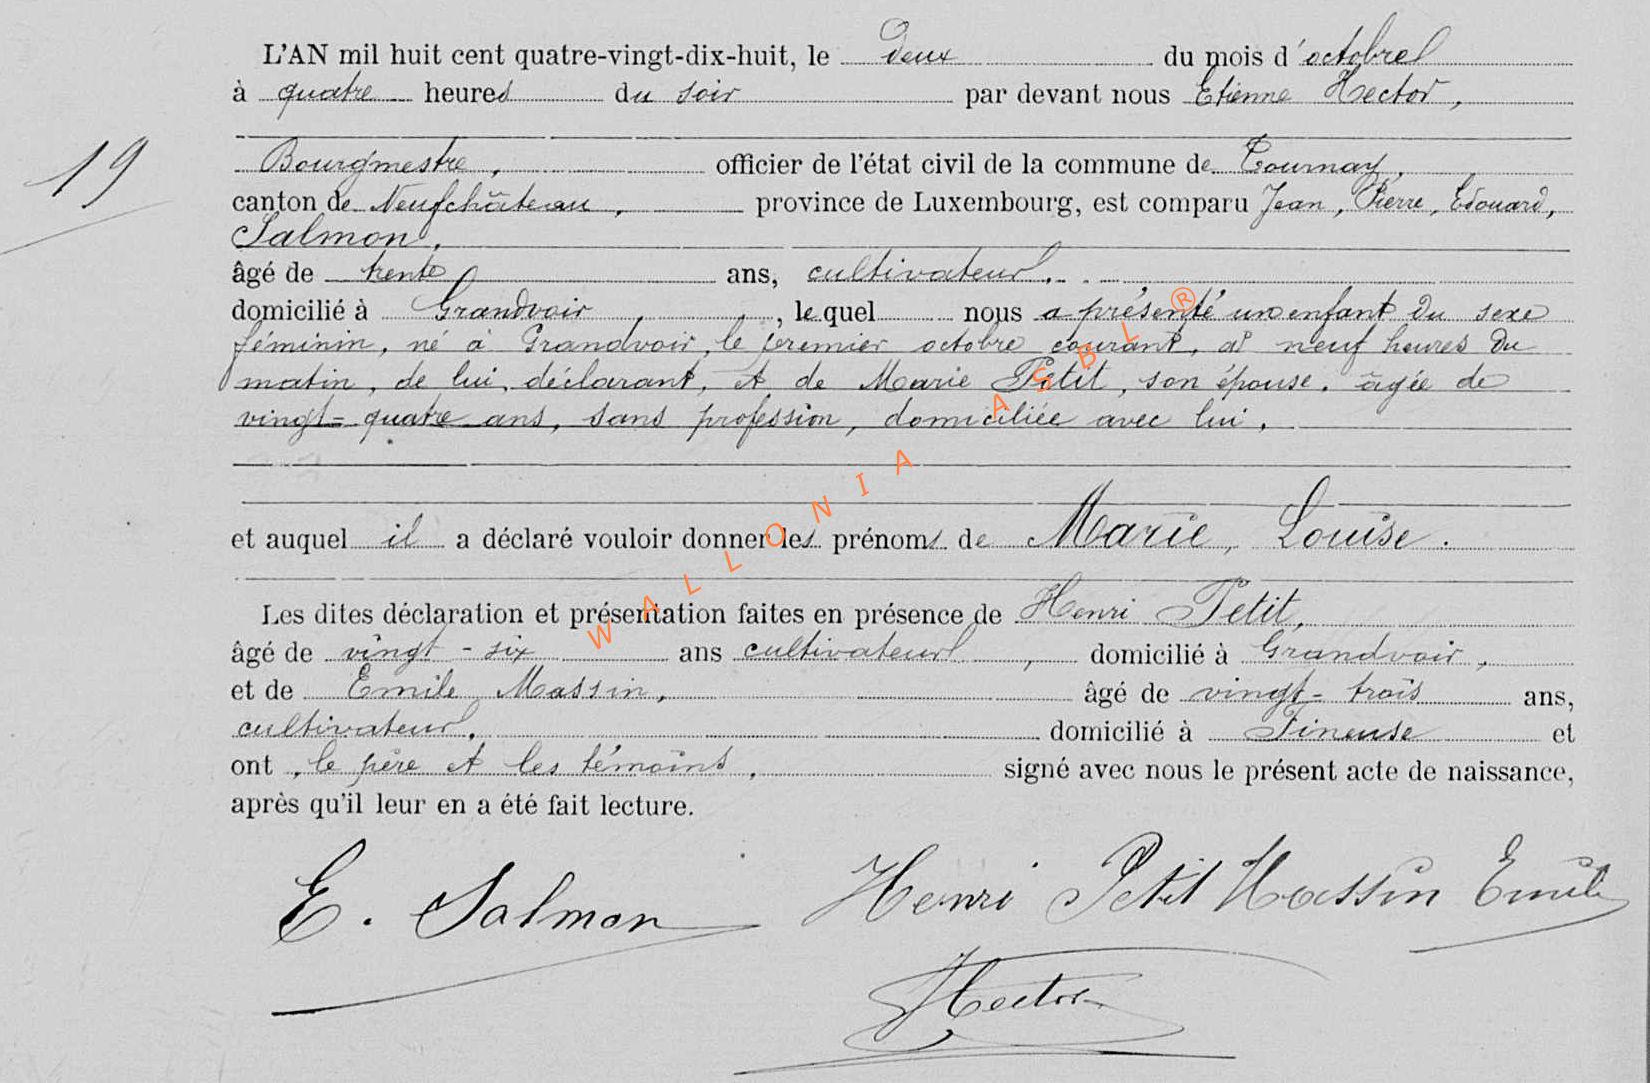 L'AN mil huit cent quatre-vingt-dix-huit, le deux du mois d'octobre
à quatre heures du soir par devant nous Etienne Hector,
19
Bourgmestre, officier de l'état civil de la commune de Tournay,
canton de Neufchâteau, province de Luxembourg, est comparu Jean, Pierre, Edouard,
Salmon,
âgé de trente ans, cultivateur,
domicilié à Grandvoir, lequel nous a présenté un enfant du sexe
féminin, né à Grandvoir, le premier octobre courant, à neuf heures du
matin, de lui, déclarant, et de Marie Petit, son épouse, âgée de
vingt-quatre ans, sans profession, domiciliée avec lui,
et auquel il a déclaré vouloir donner les prénoms de Marie, Louise.
Les dites déclaration et présentation faites en présence de Henri Petit,
âgé de vingt-six ans cultivateur, domicilié à Grandvoir,
et de Emile Massin, âgé de vingt-trois ans,
cultivateur, domicilié à Tineuse et
ont, le père et les témoins, signé avec nous le présent acte de naissance,
après qu'il leur en a été fait lecture.
E. Salmon Henri Petit Massin Emile
Hector
WALLONIA ASBL ®